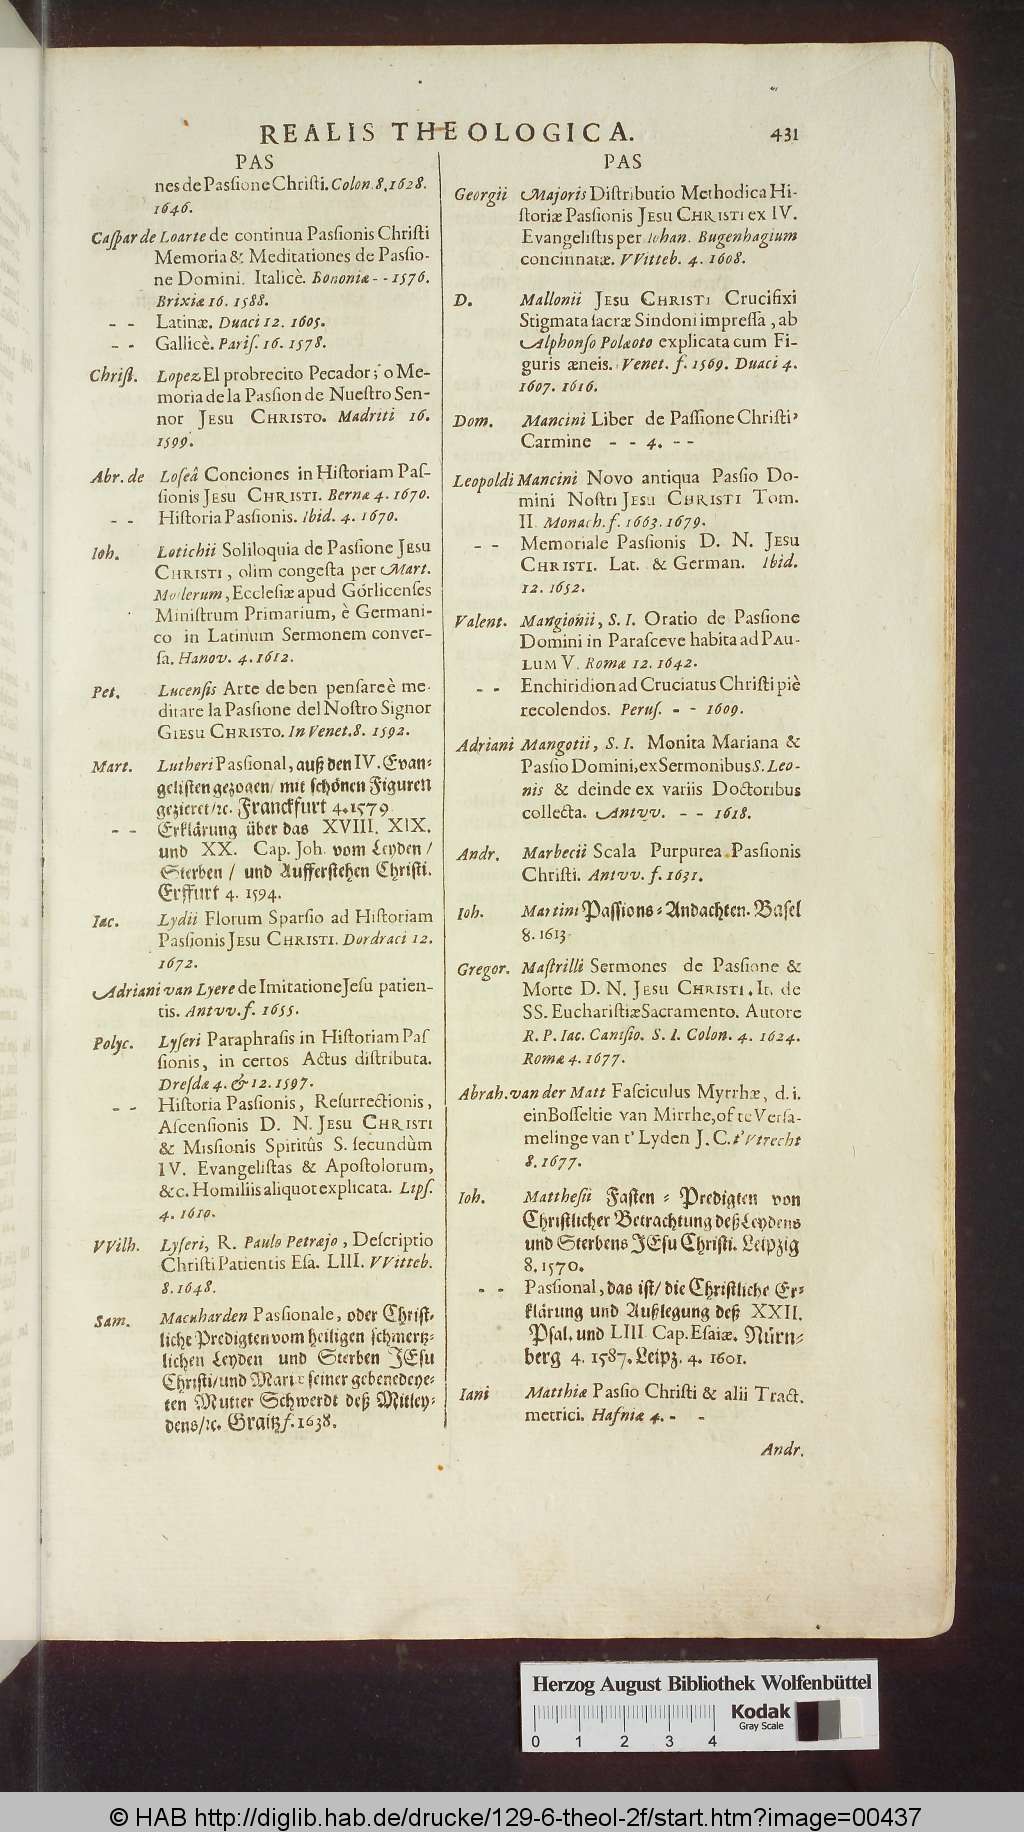 REALIS THEOLOGICA.
431
PAS
nes de Paſsione Chriſti. Colon. 8. 1628.
1646.
Caſpar de Loarte de continua Paſsionis Chriſti
Memoria & Meditationes de Paſsio-
ne Domini. Italicè. Bononiæ - - 1576.
Brixiæ 16. 1588.
- - Latinæ. Duaci 12. 1605.
- - Gallicè. Pariſ. 16. 1578.
Chriſt. Lopez El probrecito Pecador; o Me-
moria de la Paſsion de Nueſtro Sen-
nor JESU CHRISTO. Madriti 16.
1599.
Abr. de Loſeâ Conciones in Hiſtoriam Paſ-
ſionis JESU CHRISTI. Bernæ 4. 1670.
- - Hiſtoria Paſsionis. Ibid. 4. 1670.
Ioh. Lotichii Soliloquia de Paſsione JESU
CHRISTI, olim congeſta per Mart.
Mollerum, Eccleſiæ apud Görlicenſes
Miniſtrum Primarium, è Germani-
co in Latinum Sermonem conver-
ſa. Hanov. 4. 1612.
Pet. Lucenſis Arte de ben penſare è me-
ditare la Paſsione del Noſtro Signor
GIESU CHRISTO. In Venet. 8. 1592.
Mart. Lutheri Paſsional, auß den IV. Evan-
geliſten gezogen/ mit ſchönen Figuren
gezieret/ꝛc. Franckfurt 4. 1579
- - Erklärung über das XVIII. XIX.
und XX. Cap. Joh. vom Leyden/
Sterben/ und Aufferſtehen Chriſti.
Erffurt 4. 1594.
Iac. Lydii Florum Sparſio ad Hiſtoriam
Paſsionis JESU CHRISTI. Dordraci 12.
1672.
Adriani van Lyere de Imitatione Jeſu patien-
tis. Antvv. f. 1655.
Polyc. Lyſeri Paraphraſis in Hiſtoriam Paſ
ſionis, in certos Actus diſtributa.
Dreſdæ 4. & 12. 1597.
- - Hiſtoria Paſsionis, Reſurrectionis,
Aſcenſionis D. N. JESU CHRISTI
& Miſsionis Spiritûs S. ſecundùm
IV. Evangeliſtas & Apoſtolorum,
&c. Homiliis aliquot explicata. Lipſ.
4. 1610.
VVilh. Lyſeri, R. Paulo Petræjo, Deſcriptio
Chriſti Patientis Eſa. LIII. VVitteb.
8. 1648.
Sam. Macuharden Paſsionale, oder Chriſt-
liche Predigten vom heiligen ſchmertz-
lichen Leyden und Sterben JEſu
Chriſti/und Mariæ ſeiner gebenedeye-
ten Mutter Schwerdt deß Mitley-
dens/ꝛc. Graitz f. 1638.
PAS
Georgii Majoris Diſtributio Methodica Hi-
ſtoriæ Paſsionis JESU CHRISTI ex IV.
Evangeliſtis per Iohan. Bugenhagium
concinnatæ. VVitteb. 4. 1608.
D. Mallonii JESU CHRISTI Crucifixi
Stigmata ſacræ Sindoni impreſſa, ab
Alphonſo Palæoto explicata cum Fi-
guris æneis. Venet. f. 1569. Duaci 4.
1607. 1616.
Dom. Mancini Liber de Paſſione Chriſti,
Carmine - - 4. - -
Leopoldi Mancini Novo antiqua Paſsio Do-
mini Noſtri JESU CHRISTI Tom.
II. Monach. f. 1663. 1679.
- - Memoriale Paſsionis D. N. JESU
CHRISTI. Lat. & German. Ibid.
12. 1652.
Valent. Mangionii, S. I. Oratio de Paſsione
Domini in Paraſceve habita ad PAU-
LUM V. Romæ 12. 1642.
- - Enchiridion ad Cruciatus Chriſti piè
recolendos. Peruſ. - - 1609.
Adriani Mangotii, S. I. Monita Mariana &
Paſsio Domini, ex Sermonibus S. Leo-
nis & deinde ex variis Doctoribus
collecta. Antvv. - - 1618.
Andr. Marbecii Scala Purpurea Paſsionis
Chriſti. Antvv. f. 1631.
Ioh. Martini Paſſions-Andachten. Baſel
8. 1613.
Gregor. Maſtrilli Sermones de Paſsione &
Morte D. N. JESU CHRISTI. It. de
SS. Euchariſtiæ Sacramento. Autore
R. P. Iac. Canſio. S. I. Colon. 4. 1624.
Romæ 4. 1677.
Abrah. van der Matt Faſciculus Myrrhæ, d. i.
ein Boſſeltie van Mirrhe, of te Verſa-
melinge van t' Lyden J. C. t' Vtrecht
8. 1677.
Ioh. Mattheſii Faſten-Predigten von
Chriſtlicher Betrachtung deß Leydens
und Sterbens JEſu Chriſti. Leipzig
8. 1570.
- - Paſsional, das iſt/ die Chriſtliche Er-
klärung und Außlegung deß XXII.
Pſal. und LIII Cap. Eſaiæ. Nürn-
berg 4. 1587. Leipz. 4. 1601.
Iani Matthiæ Paſsio Chriſti & alii Tract.
metrici. Hafniæ 4. - -
Andr.
Herzog August Bibliothek Wolfenbüttel
Kodak
Gray Scale
0 1 2 3 4
© HAB http://diglib.hab.de/drucke/129-6-theol-2f/start.htm?image=00437